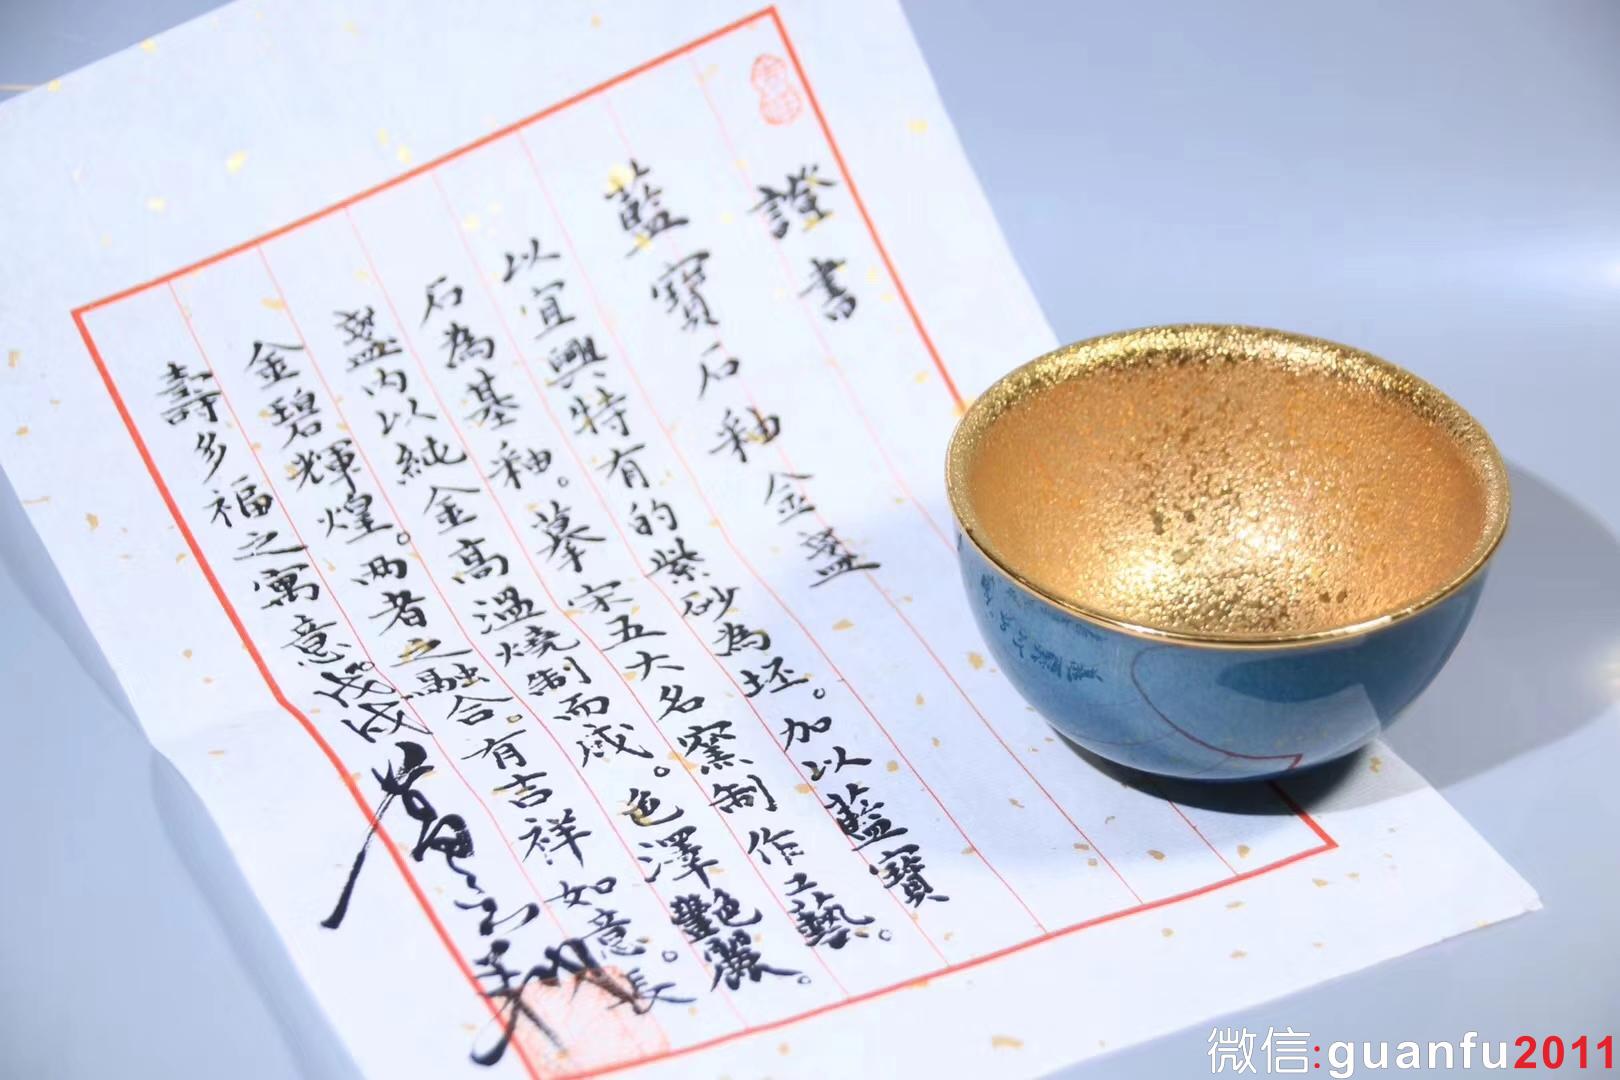 證書
藍寶石釉金盞
以宜興特有的紫砂為坯。加以藍寶
石為基釉。摹宋五大名窯制作工藝。
盞内以純金高溫燒制而成。色澤艷麗。
金碧輝煌。兩者之融合。有吉祥如意。長
壽多福之寓意。戊戌
微信:guanfu2011